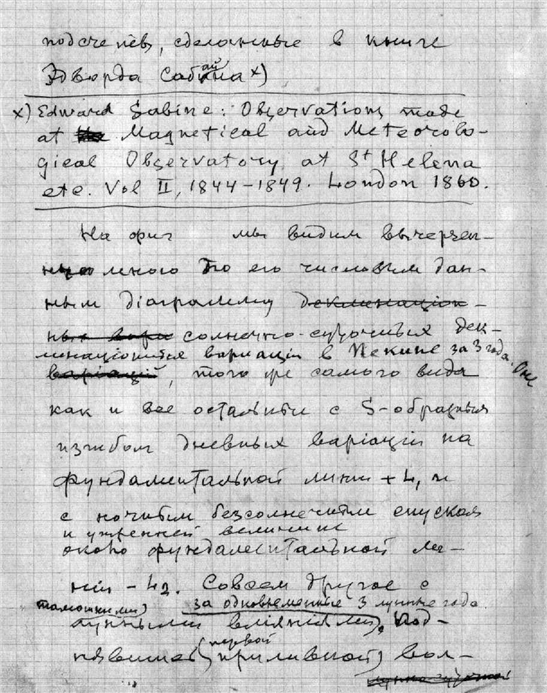 подсчетов, сделанные в книге
Эдворда Сабайна x)
x) Edward Sabine: Observations made
at the Magnetical and Meteorolo-
gical Observatory at St Helena
etc. Vol II, 1844–1849. London 1860.
На фиг мы видим вычерчен-
ную мною по его числовым дан-
ным діаграмму деклинаціон-
ных вари солнечно-суточных дек-
линаціонных варіацій в Пекине за 3 года. Она
варіацій, того же самого вида
как и все остальные с S-образным
изгибом дневных варіацій на
фундаментальной линии + 4, и
с ночным безсолнечным спуском
и утренней величине
около фундаментальной ли-
ніи – 42. Совсем другое с
тамошними за одновременные 3 лунные года.
лунными вліяніями, под-
нявшей первой приливной вол-